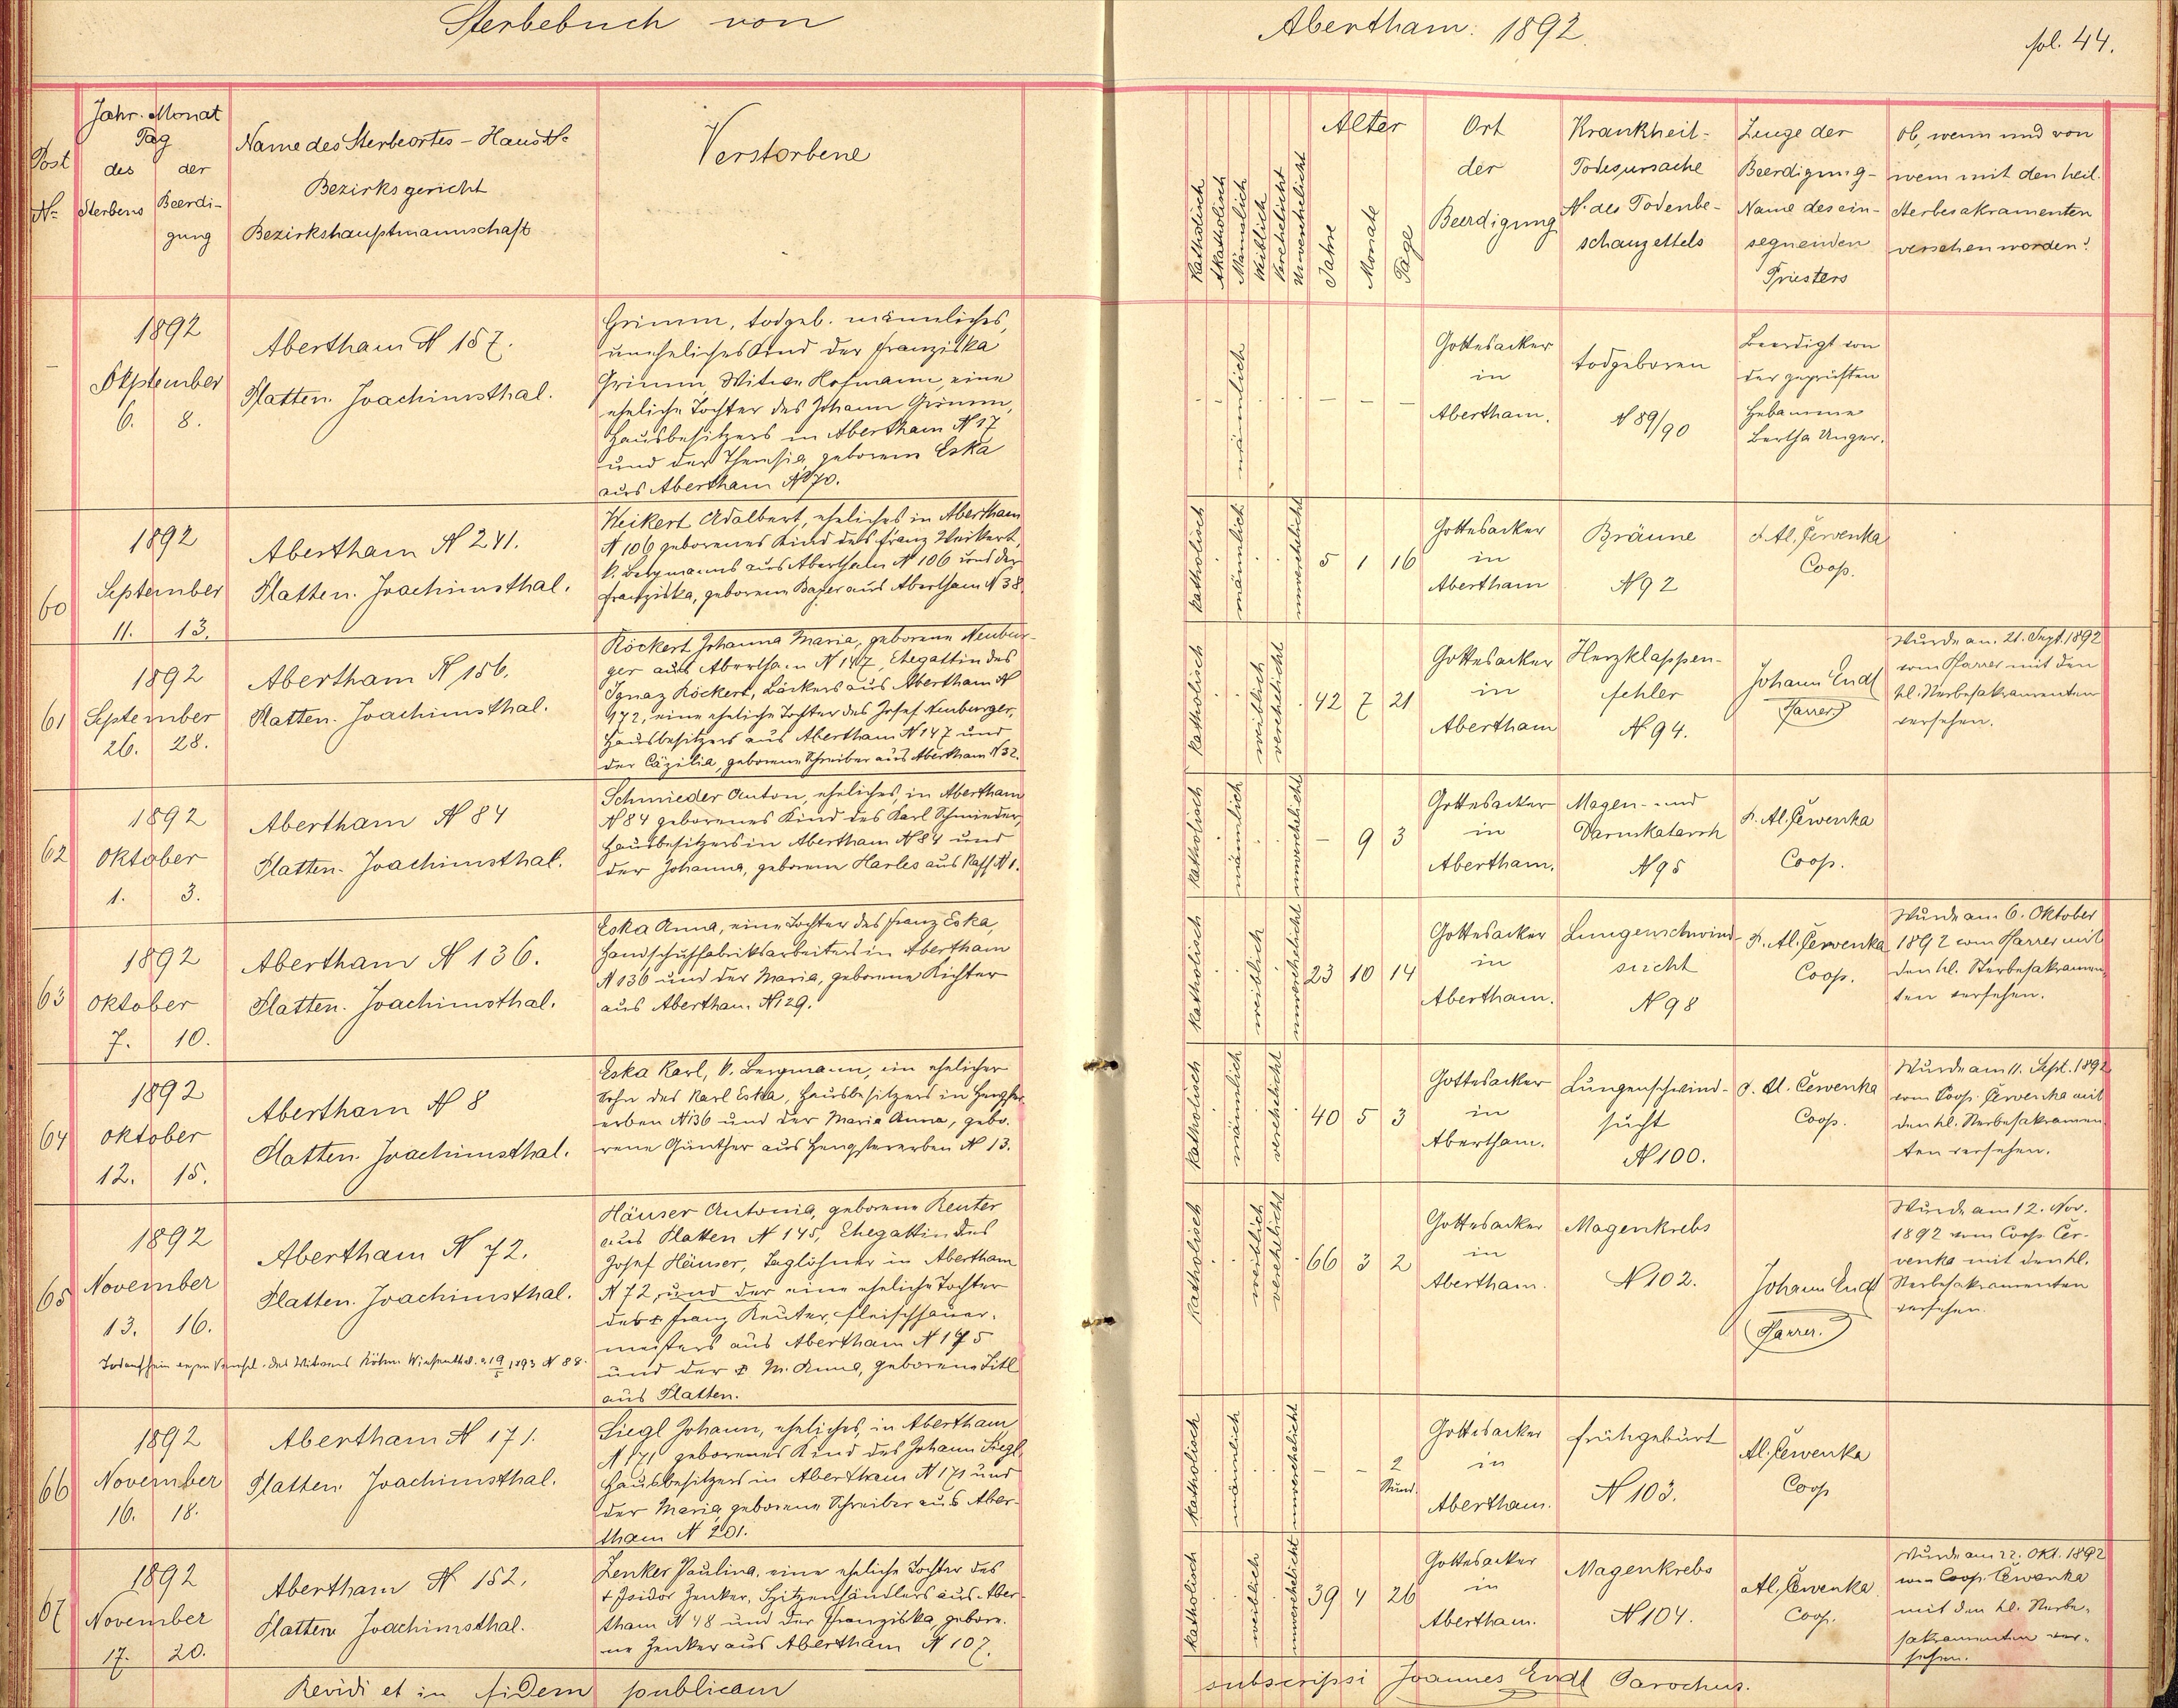 Sterbebuch von Abertham: 1892. fol. 44.
Post
No
Jahr. Monat
Tag
des der
Sterbens Beerdi-
gung
Name des Sterbeortes - Haus No
Bezirksgericht
Bezirkshauptmannschaft
Verstorbene
Katholisch
Akatholisch
Mänlich
Weiblich
Verehelicht
Unverehelicht
Alter
Jahre
Monate
Tage
Ort
der
Beerdigung
Krankheit-
Todesursache
N. des Todenbe-
schauzettels
Zeuge der
Beerdigung-
Name des ein-
segnenden
Priesters
Ob, wenn und von
wem mit den heil.
Sterbesakramenten
versehen worden?
–
1892
September
6. 8.
Abertham N 157.
Platten. Joachimsthal.
Grimm, todgeb. männliches,
uneheliches Kind der Franziska
Grimm, Witwe Hofmann, eine
eheliche Tochter des Johann Grimm,
Hausbesitzers in Abertham N 17
und der Theresia, geborene Eska
aus Abertham N 70.
männlich
– – –
Gottesacker
in
Abertham.
todgeboren
N 89/90
Beerdigt von
der geprüften
Hebamme
Bertha Unger.
60
1892
September
11. 13.
Abertham N 241.
Platten. Joachimsthal.
Weikert Adalbert, eheliches in Abertham
N 106 geborenes Kind des Franz Weikert,
k. Bergmanns aus Abertham N 106 und der
Franziska, geborene Bayer aus Abertham N 38.
katholisch
männlich
unverehelicht
5 1 16
Gottesacker
in
Abertham
Bräune
N 92
Al. Červenka
Coop.
61
1892
September
26. 28.
Abertham N 156.
Platten. Joachimsthal.
Röckert Johanna Maria, geborene Neubur-
ger aus Abertham N 147, Ehegattin des
Ignaz Röckert, Bäckers aus Abertham N
172, eine eheliche Tochter des Josef Neuburger,
Hausbesitzers aus Abertham N 147 und
der Cäzilia, geborene Schreiber aus Abertham N 32.
katholisch
weiblich
verehelicht
42 7 21
Gottesacker
in
Abertham
Herzklappen-
fehler
N 94.
Johann Endl
Pfarrer
Wurde am 21. Sept. 1892
vom Pfarrer mit den
hl. Sterbesakramenten
versehen.
62
1892
Oktober
1. 3.
Abertham N 84
Platten. Joachimsthal.
Schmieder Anton, eheliches, in Abertham
N 84 geborenes Kind des Karl Schmieder,
Hausbesitzers in Abertham N 84 und
der Johanna, geborene Harles aus Kaff N 1.
katholisch
männlich
unverehelicht
– 9 3
Gottesacker
in
Abertham.
Magen- und
Darmkatarrh
N 95
P. Al. Červenka
Coop.
63
1892
Oktober
7. 10.
Abertham N 136.
Platten. Joachimsthal.
Eska Anna, eine Tochter des Franz Eska,
Handschuhfabriksarbeiters in Abertham
N 136 und der Maria, geborene Richter
aus Abertham N 29.
katholisch
weiblich
unverehelicht
23 10 14
Gottesacker
in
Abertham.
Lungenschwind-
sucht
N 98
P. Al. Červenka
Coop.
Wurde am 6. Oktober
1892 vom Pfarrer mit
den hl. Sterbesakramen-
ten versehen.
64
1892
Oktober
12. 15.
Abertham N 8
Platten. Joachimsthal.
Eska Karl, k. Bergmann, ein ehelicher
Sohn des Karl Eska, Hausbesitzers in Hengster
erben N 136 und der Maria Anna, gebo-
rene Günther aus Hengstererben N 13.
katholisch
männlich
verehelicht
40 5 3
Gottesacker
in
Abertham.
Lungenschwind-
sucht
N 100.
P. Al. Červenka
Coop.
Wurde am 11. Sept. 1892
vom Coop. Červenka mit
den hl. Sterbesakramen-
ten versehen.
65
1892
November
13. 16.
Abertham N 72.
Platten. Joachimsthal.
Häuser Antonia, geborene Reuter
aus Platten N 145, Ehegattin des
Josef Häuser, Taglöhner in Abertham
N 72, und der eine eheliche Tochter
des + Franz Reuter, Fleischhauer-
meisters aus Abertham N 145
und der + M. Anna, geborene Titl
aus Platten.
des Witwers Böhm. Wiesenthal. 19/5 1893 N 88.
katholisch
weiblich
verehelicht
66 3 2
Gottesacker
in
Abertham.
Magenkrebs
N 102.
Johann Endl
Pfarrer.
Wurde am 12. Nov.
1892 vom Coop. Čer-
venka mit den hl.
Sterbesakramenten
versehen.
66
1892
November
16. 18.
Abertham N 171.
Platten Joachimsthal.
Siegl Johann, eheliches, in Abertham
N 171 geborenes Kind des Johann Siegl,
Hausbesitzers in Abertham N 171 und
der Maria, geborene Schreiber aus Aber-
tham N 201.
katholisch
männlich
unverehelicht
– – 2
Stund.
Gottesacker
in
Abertham.
Frühgeburt
N 103.
Al. Červenka
Coop
67
1892
November
17. 20.
Abertham N 152.
Platten Joachimsthal.
Zenker Paulina, eine eheliche Tochter des
+ Isidor Zenker, Spitzenhändlers aus Aber-
tham N 48 und der Franziska, gebore-
ne Zenker aus Abertham N 107.
katholisch
weiblich
unverehelicht
39 4 26
Gottesacker
in
Abertham.
Magenkrebs
N 104.
Al. Červenka
Coop.
Wurde am 22. Okt. 1892
vom Coop. Červenka
mit den hl. Sterbe-
sakramenten ver-
sehen.
Revidi et in fidem publicam subscripsi Joannes Endl Parochus.